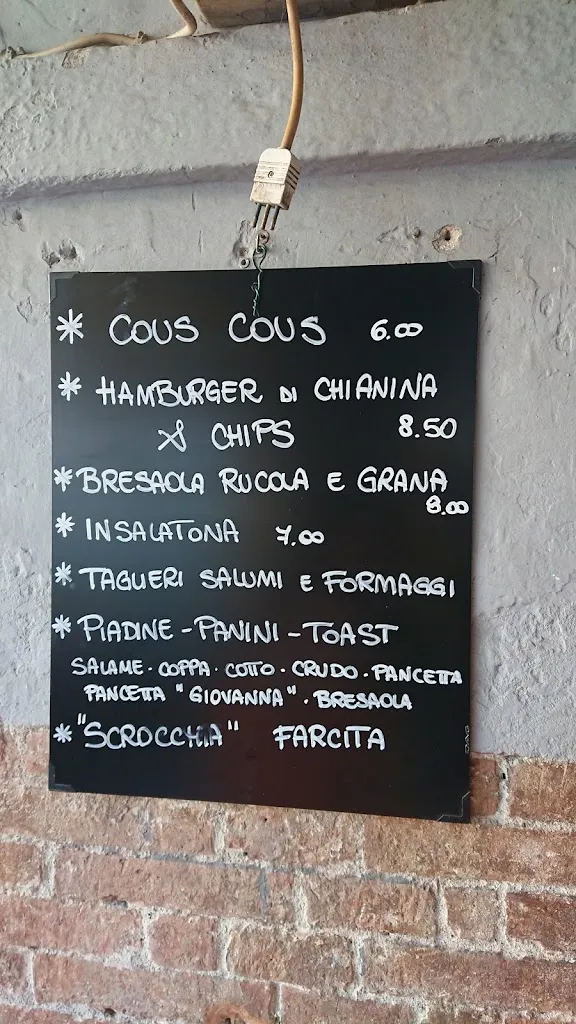 * COUS COUS 6.00
* HAMBURGER DI CHIANINA
& CHIPS 8.50
* BRESAOLA RUCOLA E GRANA
8.00
* INSALATONA 7.00
* TAGLIERI SALUMI E FORMAGGI
* PIADINE - PANINI - TOAST
SALAME · COPPA · COTTO · CRUDO · PANCETTA
PANCETTA "GIOVANNA" · BRESAOLA
* "SCROCCHIA" FARCITA